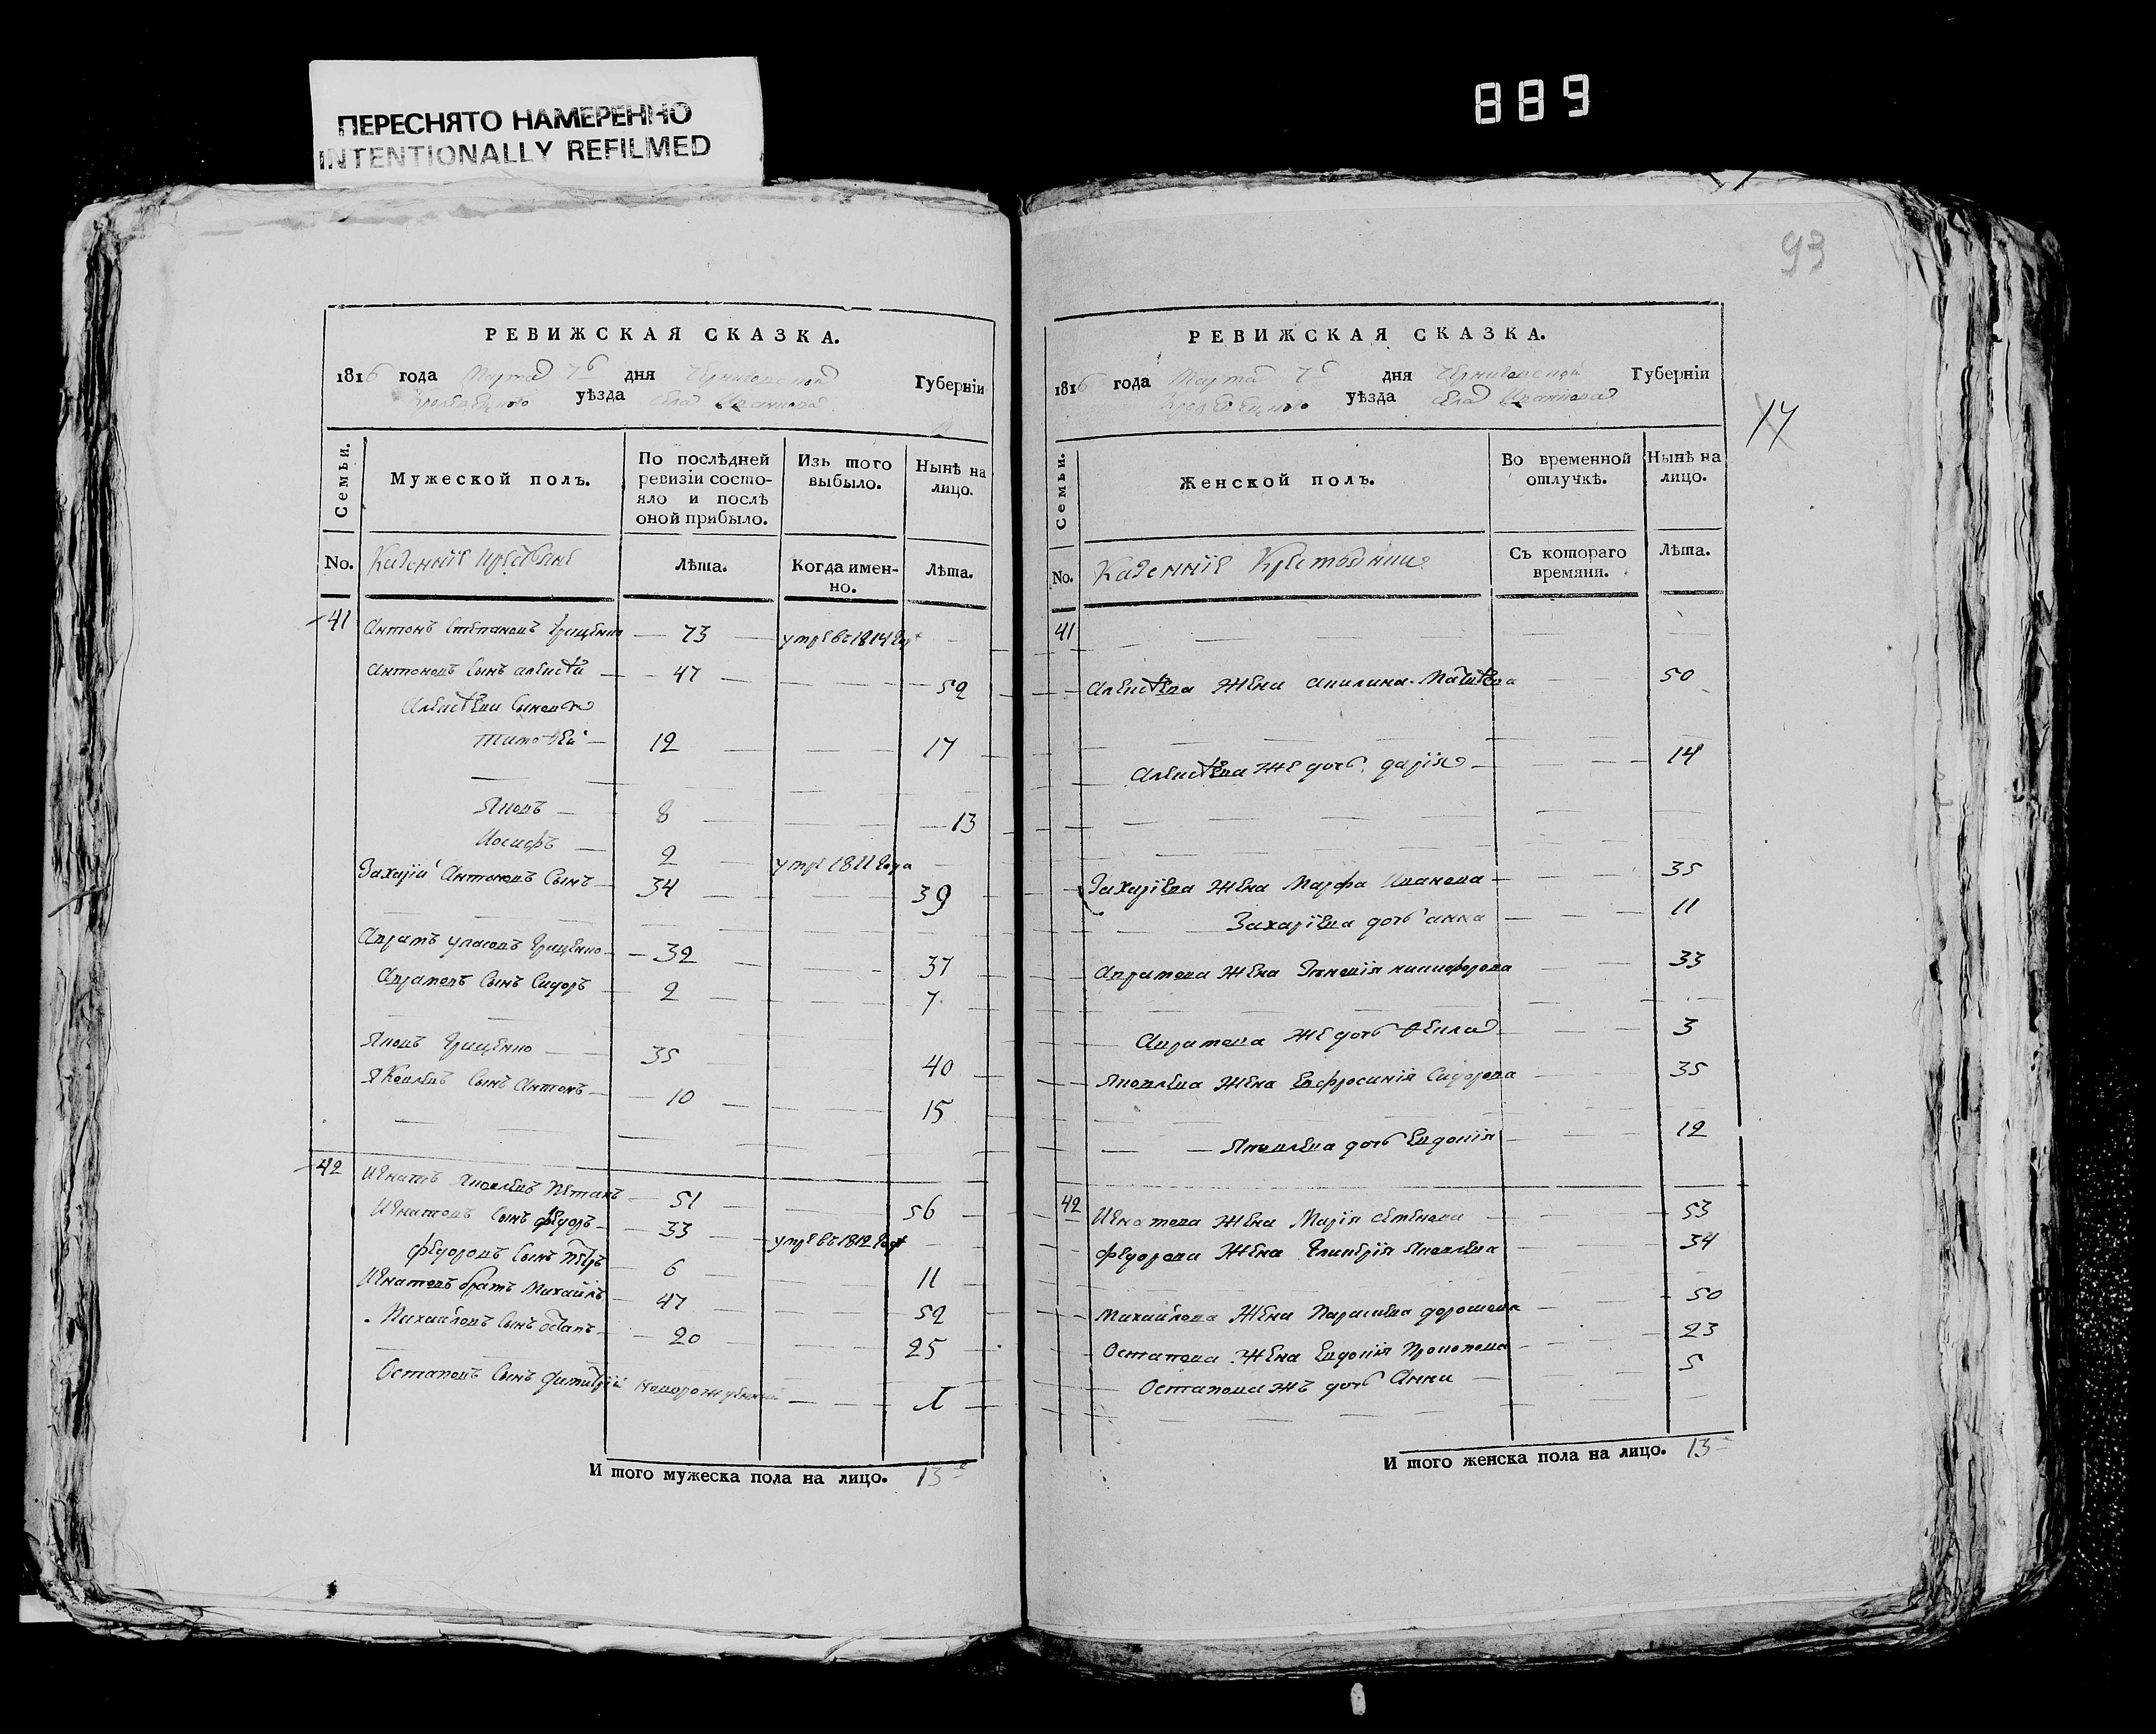 ПЕРЕСНЯТО НАМЕРЕННО
INTENTIONALLY REFILMED
889
93
РЕВИЖСКАЯ СКАЗКА.
1816 года Марта 7го дня Черниговской Губерніи
уѣзда села Иванкова
Семьи.
Мужеской полъ.
По послѣдней
ревизіи состо-
яло и послѣ
оной прибыло.
Изъ того
выбыло.
Нынѣ на
лицо.
No.
Казеннiе
Лѣта.
Когда имен-
но.
Лѣта.
41 Антонъ Степановъ Грищенко 73 умре въ 1814 году
Антоновъ Сынъ Алексѣй 47 52
Алексѣеви Сыновя
Тимоѳей 12 17
Яковъ 8 13
Иосифъ 2 умре 1811 года
Захарій Антоновъ Сынъ 34 39
Аврамъ Уласовъ Грищенко 32 37
Аврамовъ Сынъ Сидоръ 2 7
Яковъ Грищенко 35 40
Яковлевъ Сынъ Антонъ 10 15
42 Игнатъ Яковлевъ 51 56
Игнатовъ Сынъ Федоръ 33 умре въ 1812 году
Федоровъ Сынъ Петръ 6 11
Игнатовъ братъ Михайлъ 47 52
Михайловъ Сынъ Остапъ 20 25
Остаповъ Сынъ Димитрій новорожденный
И того мужеска пола на лицо. 13
РЕВИЖСКАЯ СКАЗКА.
1816 года Марта 7го дня Черниговской Губерніи
уѣзда села Иванкова
14
Семьи.
Женской полъ.
Во временной
отлучкѣ.
Нынѣ на
лицо.
No.
Казеннiе Крестьянки
Съ котораго
времяни.
Лѣта.
41
Алексѣева Жена Акилина Матвѣева 50
Алексѣева Же дочь Дарія 14
Захаріева Жена Марфа Иванова 35
Захаріева дочь Анна 11
Аврамова Жена Зѣновія Никифорова 33
Аврамова Же дочь Ѳекла 3
Яковлева Жена Евфросинія Сидорова 35
Яковлева дочь Евдокія 12
42 Игнатова Жена Марія Семенова 53
Федорова Жена Гликерія Яковлева 34
Михайлова Жена Параскева Дорошева 50
Остапова Жена Евдокія Прокопова 23
Остапова жъ дочь Анна 5
И того женска пола на лицо. 13